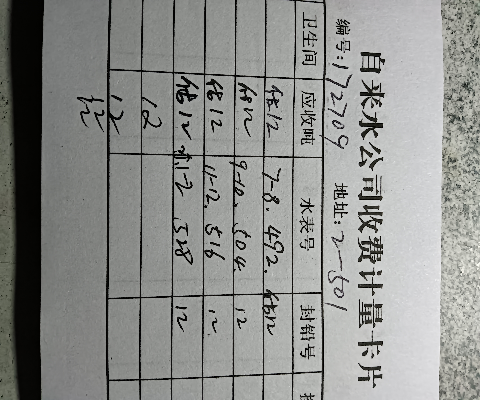 自来水公司收费计量卡片
编号:172709 地址:2-501
卫生间 应收吨 水表号 封铅号
估12 7-8.492. 估12
估12 9-10.504. 12
估12 11-12.516 12.
估12 1-2.528 12
12
12
12